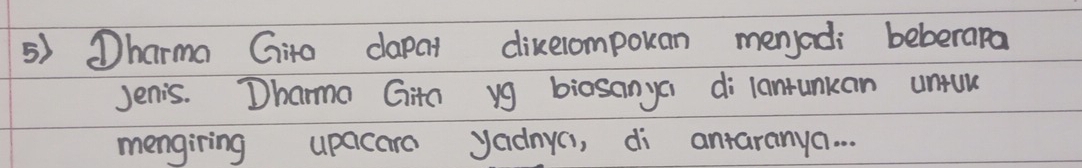 5) Dharma Gita dapat dikelompokan menjadi beberapa
jenis. Dharma Gita yg biasanya di lantunkan untuk
mengiring upacara yadnya, di antaranya...